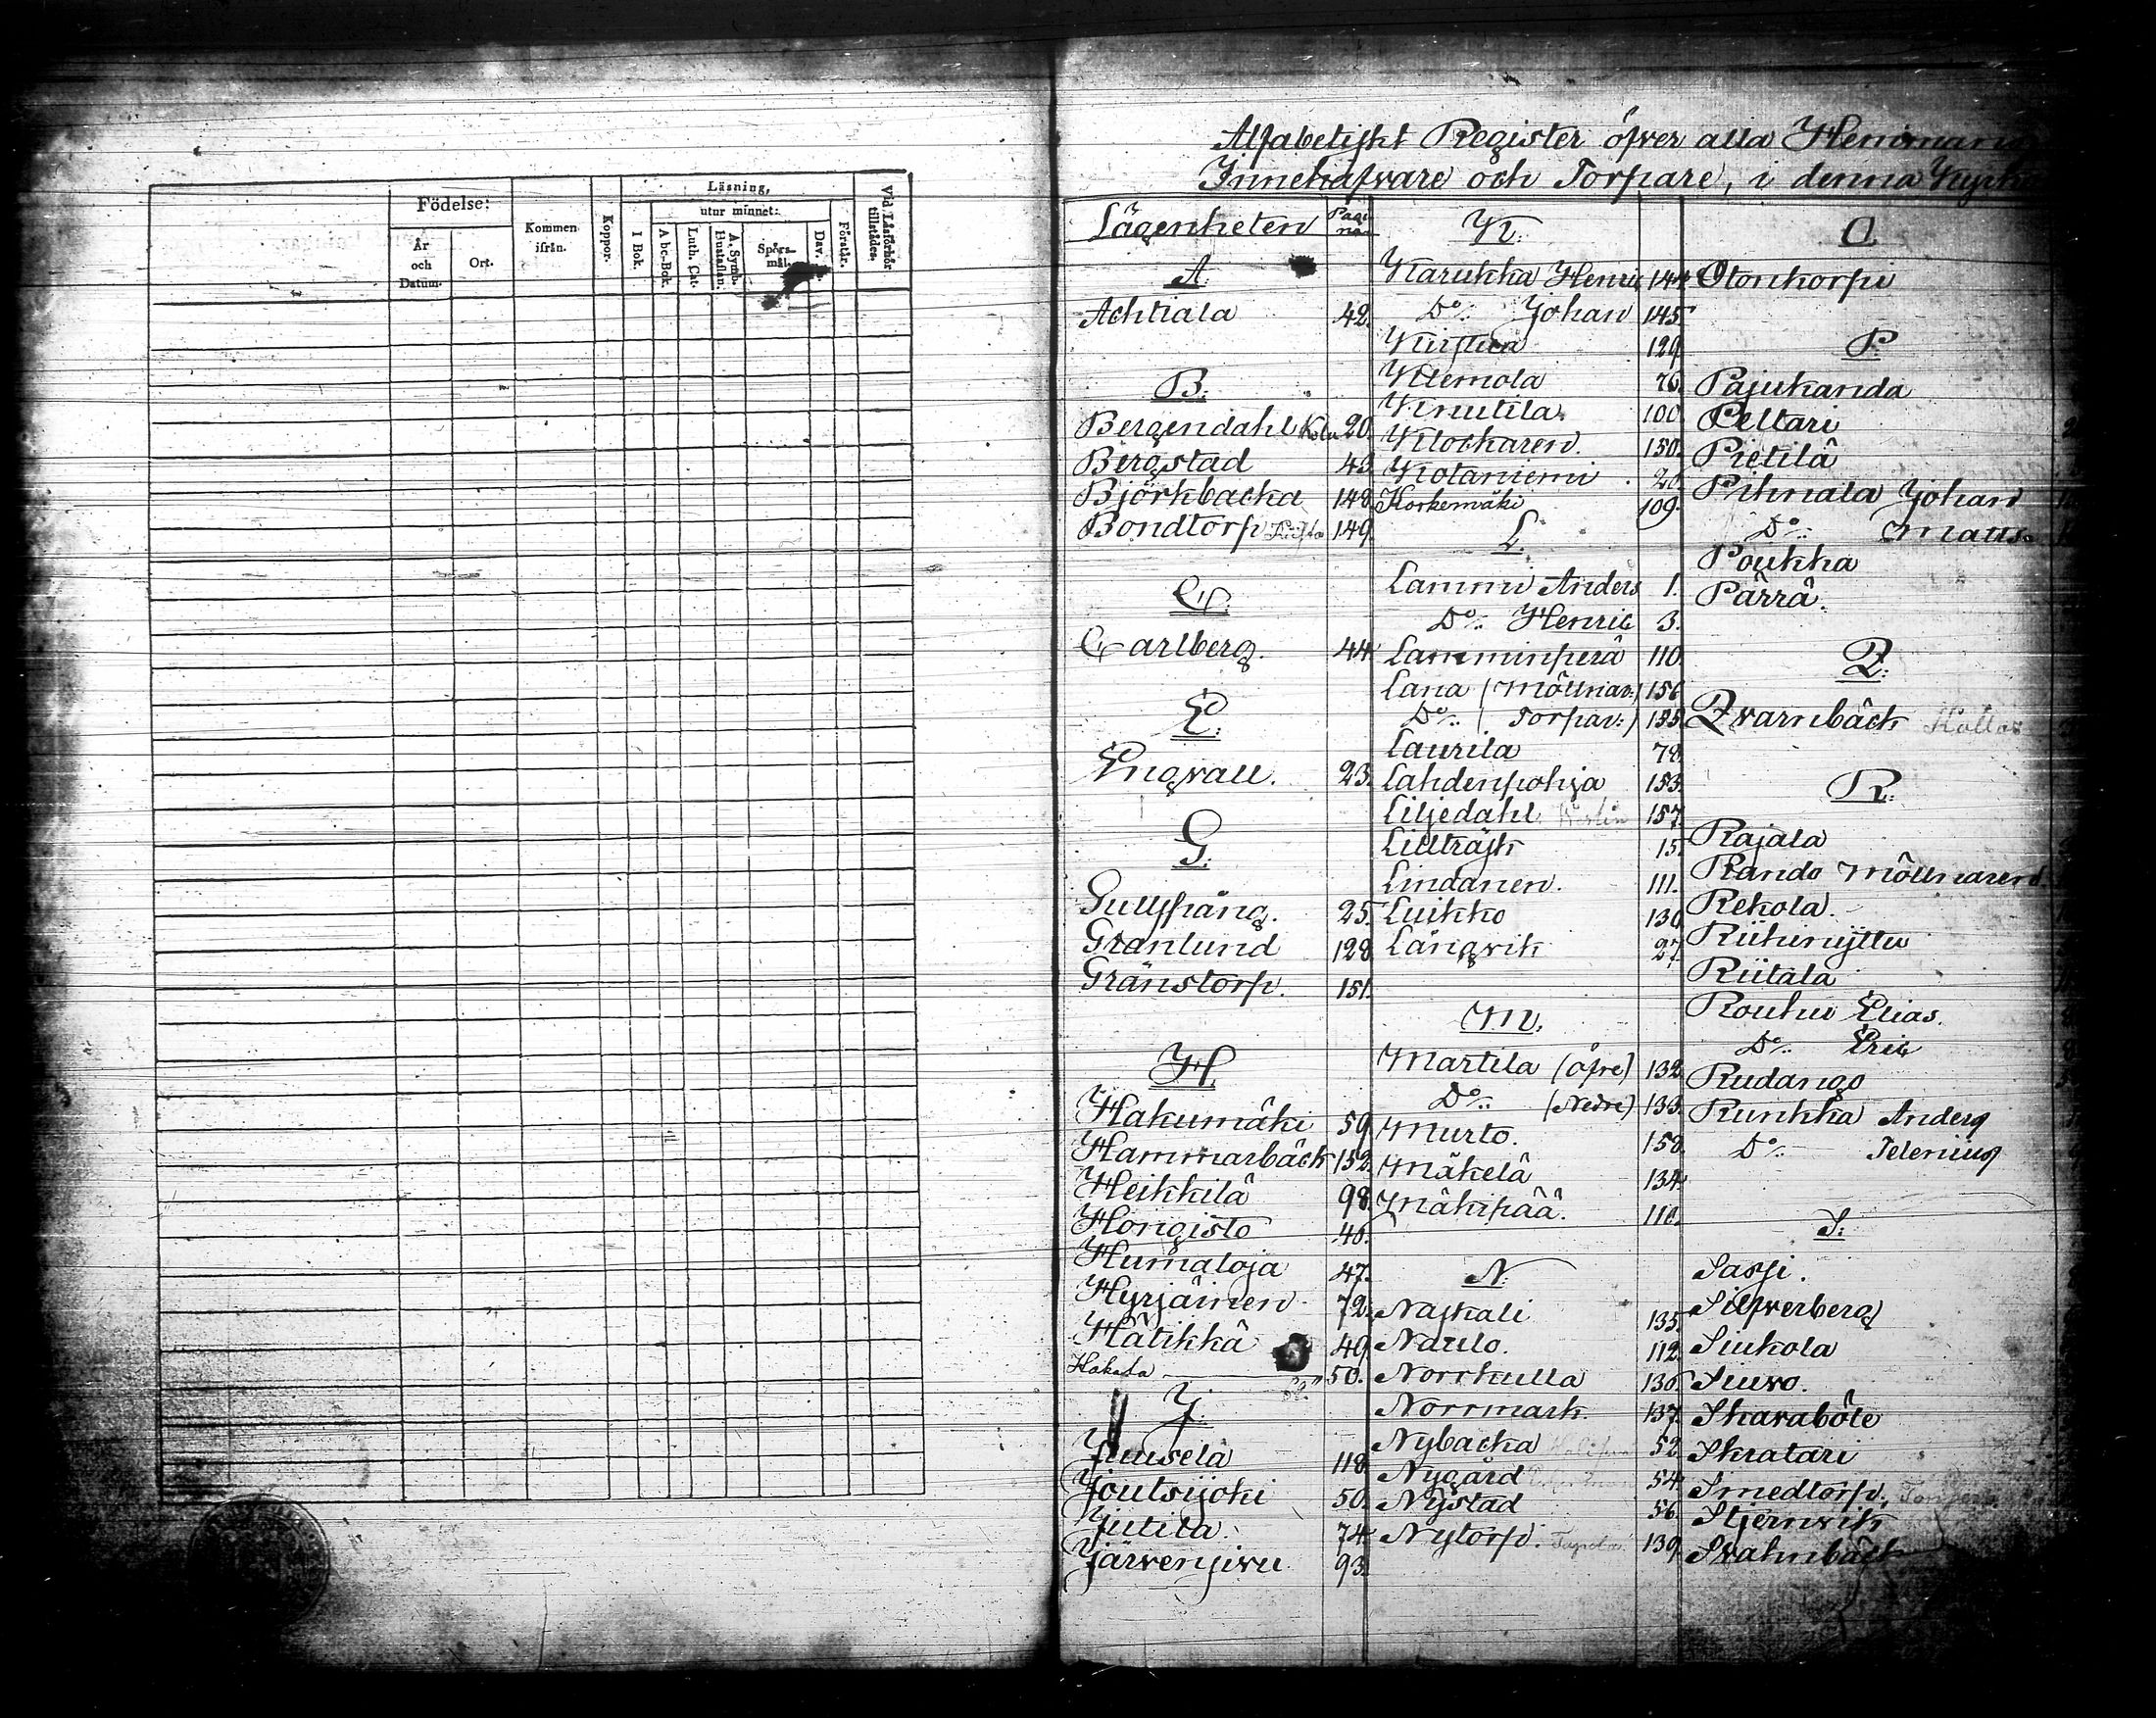 Födelse:
År och Datum.
Ort.
Kommen ifrån.
Koppor.
Läsning,
I Bok.
utur minnet:
A bc-Bok.
Luth. Cat.
A. Symb. Hustaflan.
Spörs- mål.
Dav.
Förstår.
Vid Läsförhör tillstädes.
Alfabetiskt Register öfver alla
Innehafvare och Torpare, i denna
Lägenheten Pagi na
A.
Achtiala 42.
B.
Bergendahl 20.
Bergstad
Björkbacka 148
Bondtorp 149.
C.
Carlberg. 44.
E.
Engvall. 23.
G.
25.
Granlund 128
Gränstorp. 151.
H.
Hakumäki 59
Hammarbäck 152
Heikkilä 98.
Hongisto 40.
Humaloja 47.
Hyrjäinen 72
Hätikkä 49
50.
J.
Juusela 118
Joutsijoki 50.
Jutila. 74.
93.
K.
Karukka Henric 144
Do Johan 145
129
Klemola 76.
Knutila. 100.
Klockaren. 150.
Kotaniemi
Korkemäki 109.
L.
Lammi Anders 1.
Do Henric 3.
Lamminperä 110.
Lana (Möllnar:) 156
Do (Torpar:)
Laurila 78.
Lahdenpohja 153.
Liljedahl 157.
Lillträsk 15.
Lindanen. 111.
Luikko 130
Långvik 27.
M.
Martila (Öfre) 132
Do (Nedre) 133.
Murto. 158.
Mäkelä 134.
Mäkipää.
N.
Naskali 135.
Naulo. 112.
Norrkulla
Norrmark. 137.
Nybacka 52
Nygård 54
Nystad 56.
Nytorp. 139
O.
Otonkorpi
P.
Pajukanda
Peltari
Pietilä
Pihnala Johan
Do Matts.
Poukka
Pärrä.
Q.
Qvarnbäck
R.
Rajala
Rando Möllnaren
Rekola.
Riitala
Rouhu Elias.
Do Eric
Rudango
Runkka Anders
Do
S.
Sassi.
Silfverberg
Siukola
Siuro.
Skaraböle
Skratari
Smedtorp.
Stjernvik